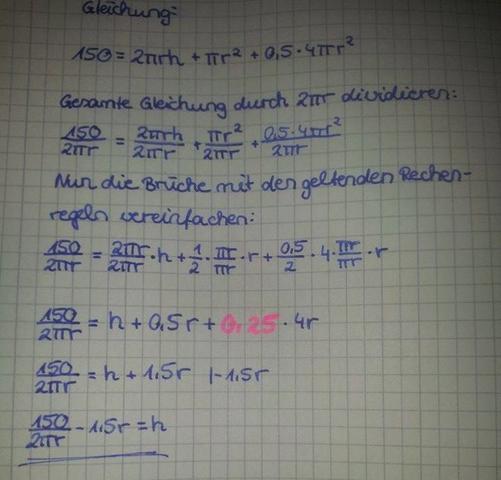 Gleichung:
150 = 2πrh + πr² + 0,5 · 4πr²
Gesamte Gleichung durch 2πr dividieren:
150/2πr = 2πrh/2πr + πr²/2πr + 0,5·4πr²/2πr
Nur die Brüche mit den geltenden Rechen-
regeln vereinfachen:
150/2πr = 2πr/2πr · h + 1/2 · πr/πr · r + 0,5/2 · 4 · πr/πr · r
150/2πr = h + 0,5r + 0,25 · 4r
150/2πr = h + 1,5r |-1,5r
150/2πr - 1,5r = h